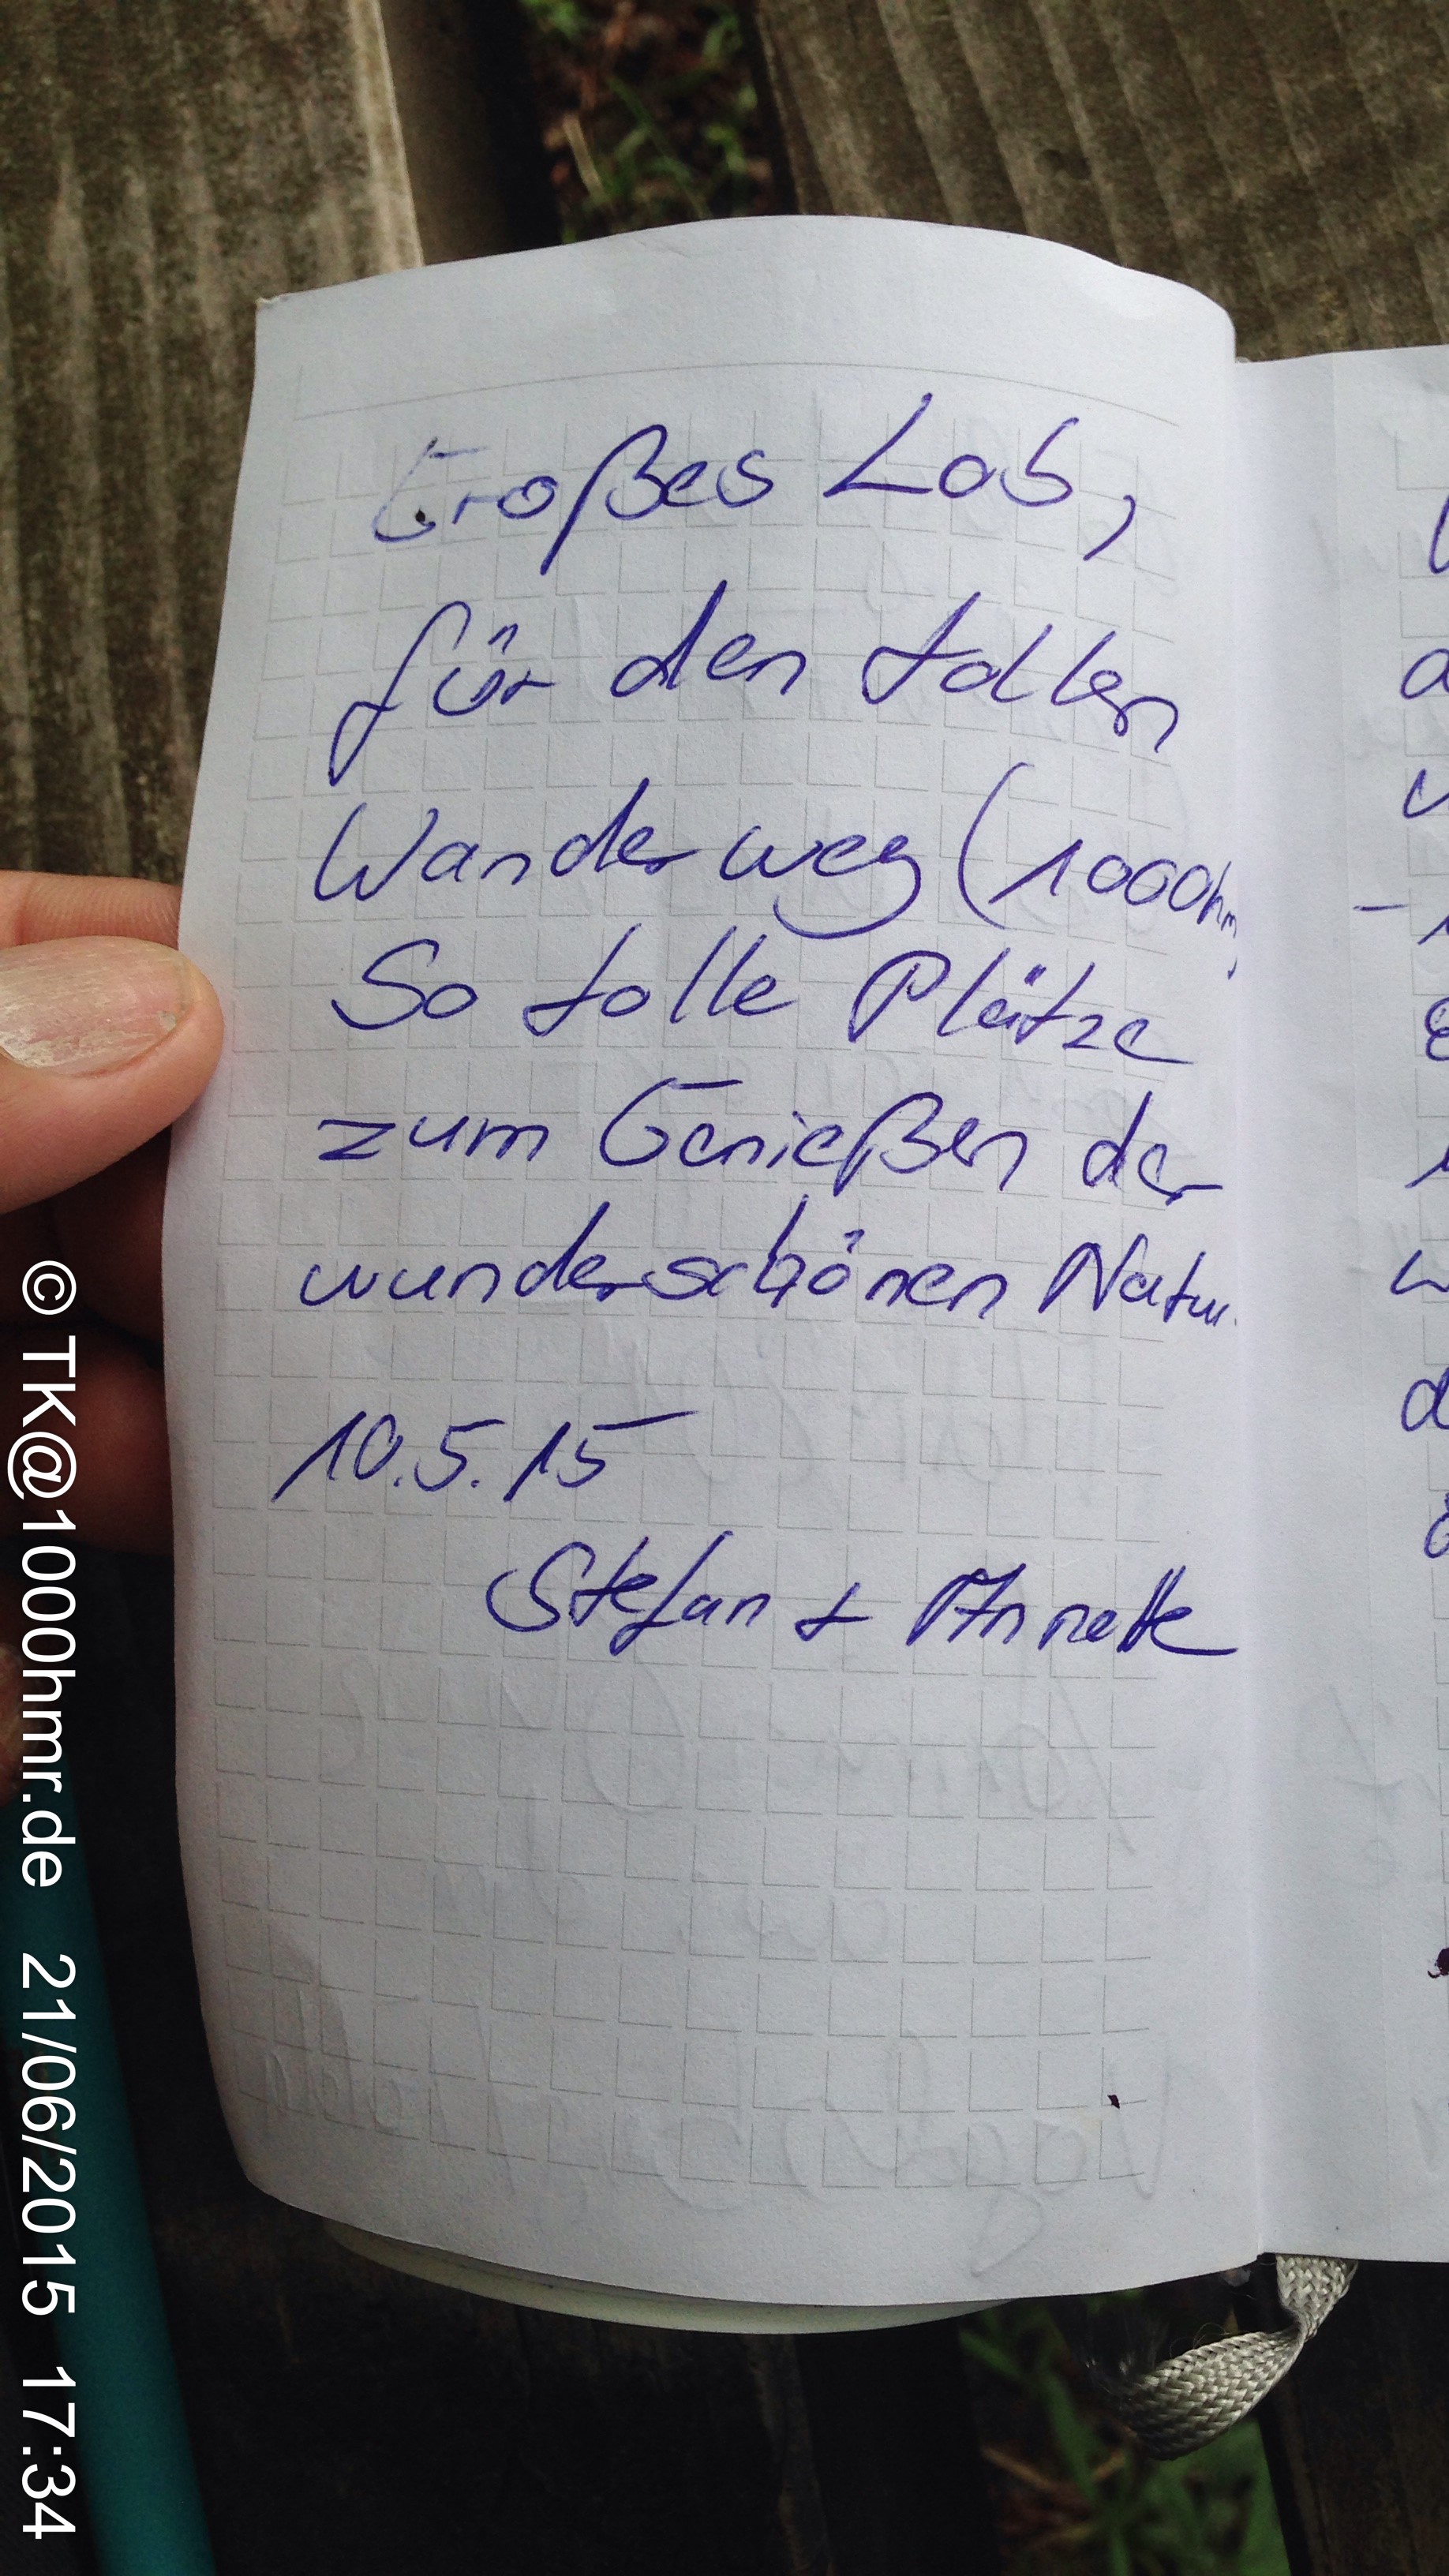 Großes Lob,
für den tollen
Wanderweg (1000hm)
So tolle Plätze
zum Genießen der
wunderschönen Natur.
10.5.15
Stefan + Annette
© TK@1000hmr.de 21/06/2015 17:34